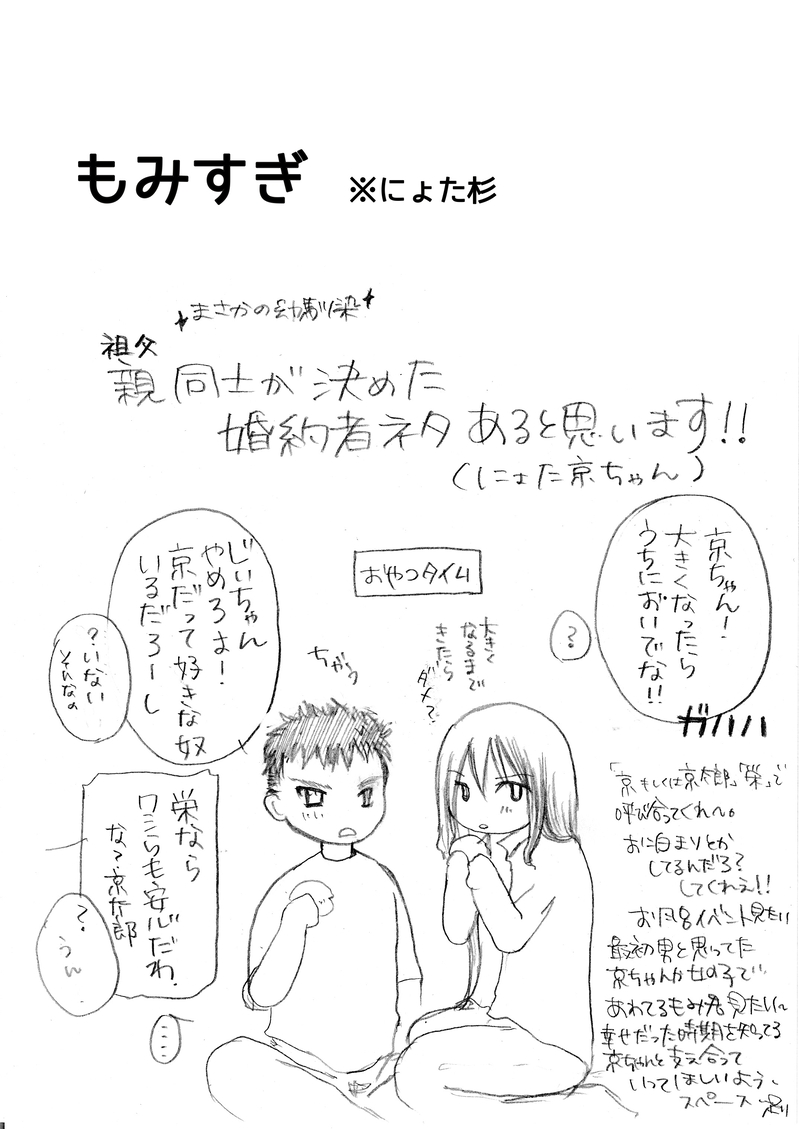 もみすぎ ※にょた杉
まさかの幼馴染
祖父
親同士が決めた
婚約者ネタあると思います!!
(にょた京ちゃん)
京ちゃん!
大きくなったら
うちにおいでな!!
ガハハハ
?
おやつタイム
大きく
なるまで
きたら
ダメ?
ちゃっ
じいちゃん
やめろよ!
京だって好きな奴
いるだろーし
?いない
そんなの
栄なら
ワシらも安心だわ
な?京太郎
?
うん
「京もしくは京太郎」「栄」で
呼び合ってくれ〜。
お泊まりとか
してるんだろ?
してくれえ!!
お風呂イベント見たい
最初男と思ってた
京ちゃんが女の子で
あわてるもみ君見たい〜
幸せだった時期を知ってる
京ちゃんと支え合って
いってほしいよう、
スペース足り